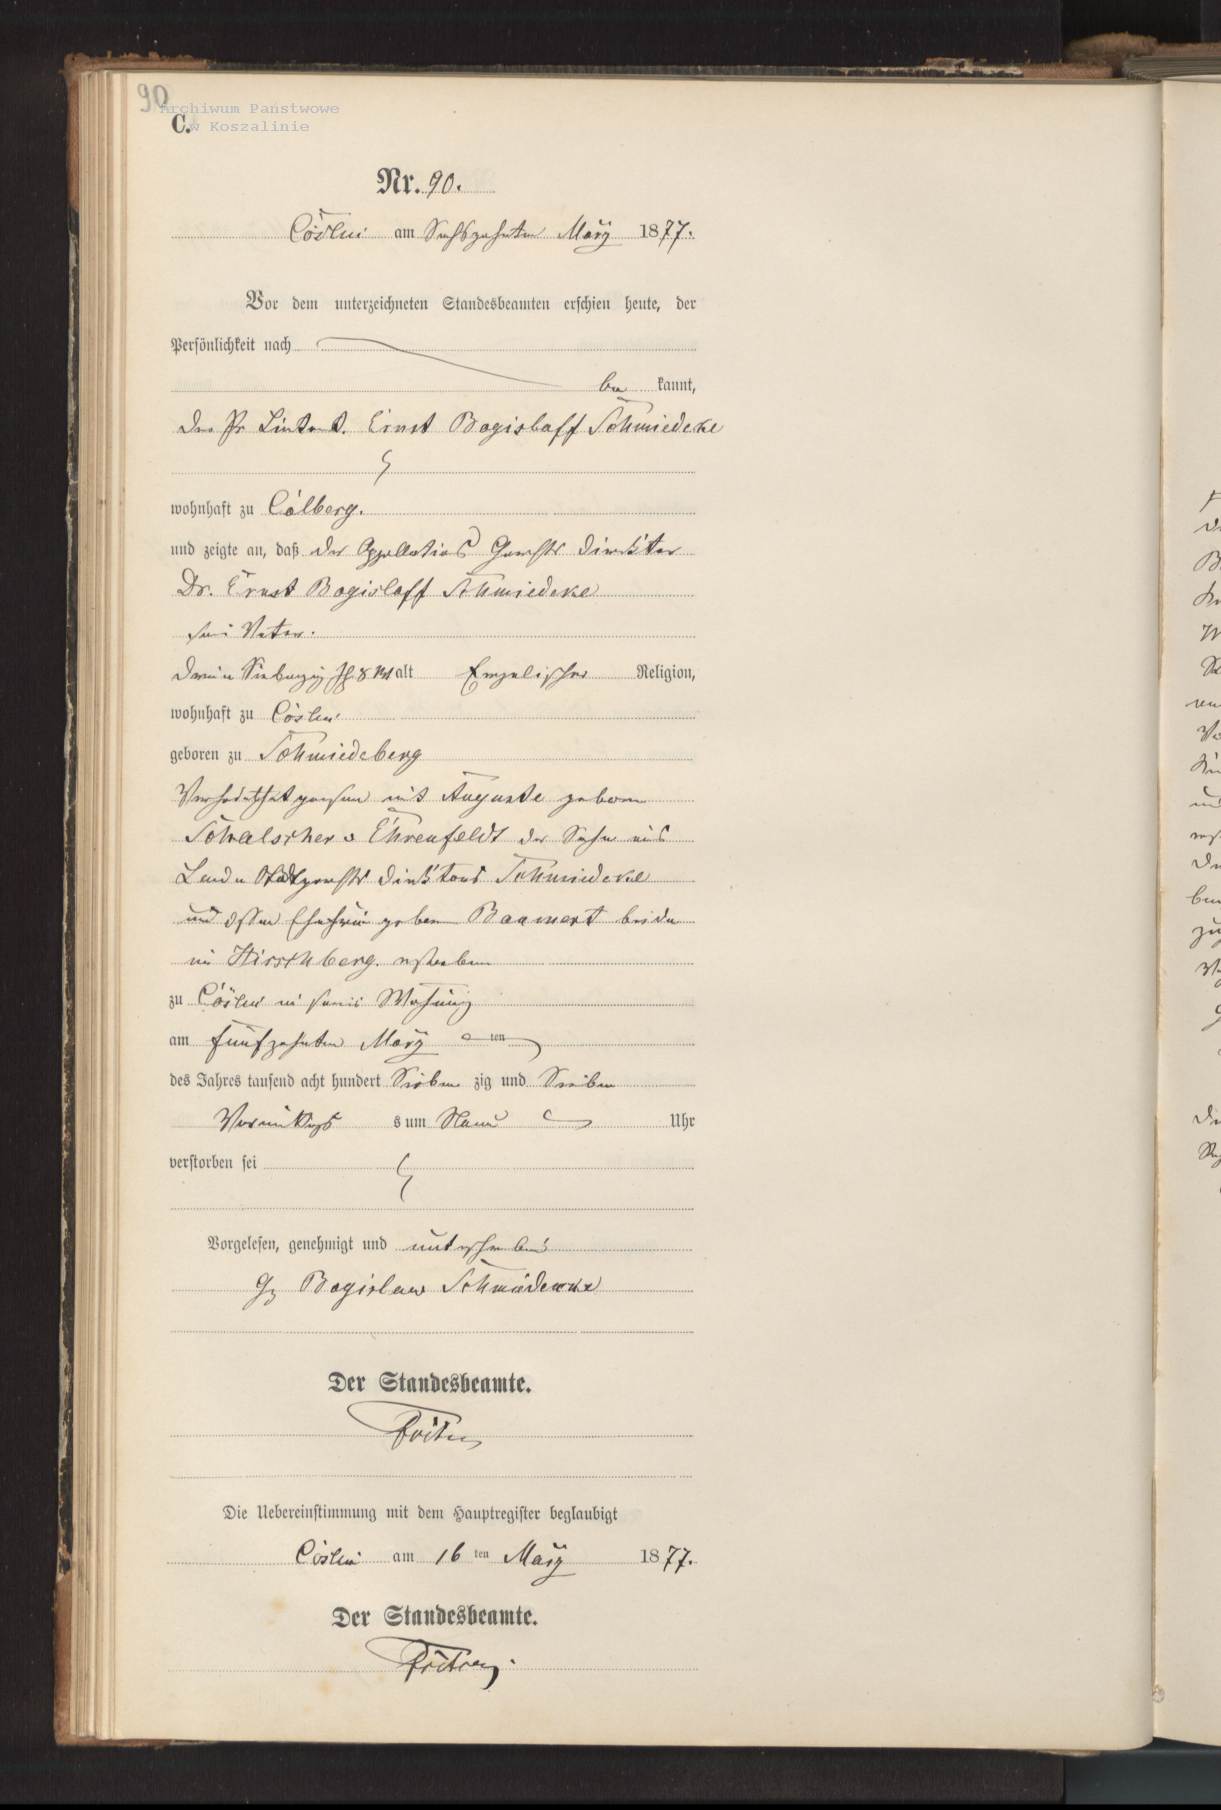 90
Archiwum Państwowe
w Koszalinie
C.
Nr. 90.
Cöslin am Sechszehnten März 1877.
Vor dem unterzeichneten Standesbeamten erschien heute, der
Persönlichkeit nach
be kannt,
der Pr Lieutent. Ernst Bogislaff Schmiedeke
wohnhaft zu Colberg.
und zeigte an, daß der Appellations Gerichts Direktor
Dr. Ernst Bogislaff Schmiedeke
sein Vater.
drei u Siebenzig J 8 Mt alt Evangelischer Religion,
wohnhaft zu Cöslin
geboren zu Schmiedeberg
Verheirathet gewesen mit Auguste geboren
Ehrenfeldt der Sohn des
Land u Stadtgerichts Direktors Schmiedeke
und dessen Ehefrau geboren Baumert beide
in Hirschberg verstorben
zu Cöslin in seiner Wohnung
am fünfzehnten März ten
des Jahres tausend acht hundert Sieben zig und Sieben
Vormittags s um Neun Uhr
verstorben sei
Vorgelesen, genehmigt und unterschrieben
Gz Bogislaw Schmiedecke
Der Standesbeamte.
Die Uebereinstimmung mit dem Hauptregister beglaubigt
Cöslin am 16 ten März 1877.
Der Standesbeamte.